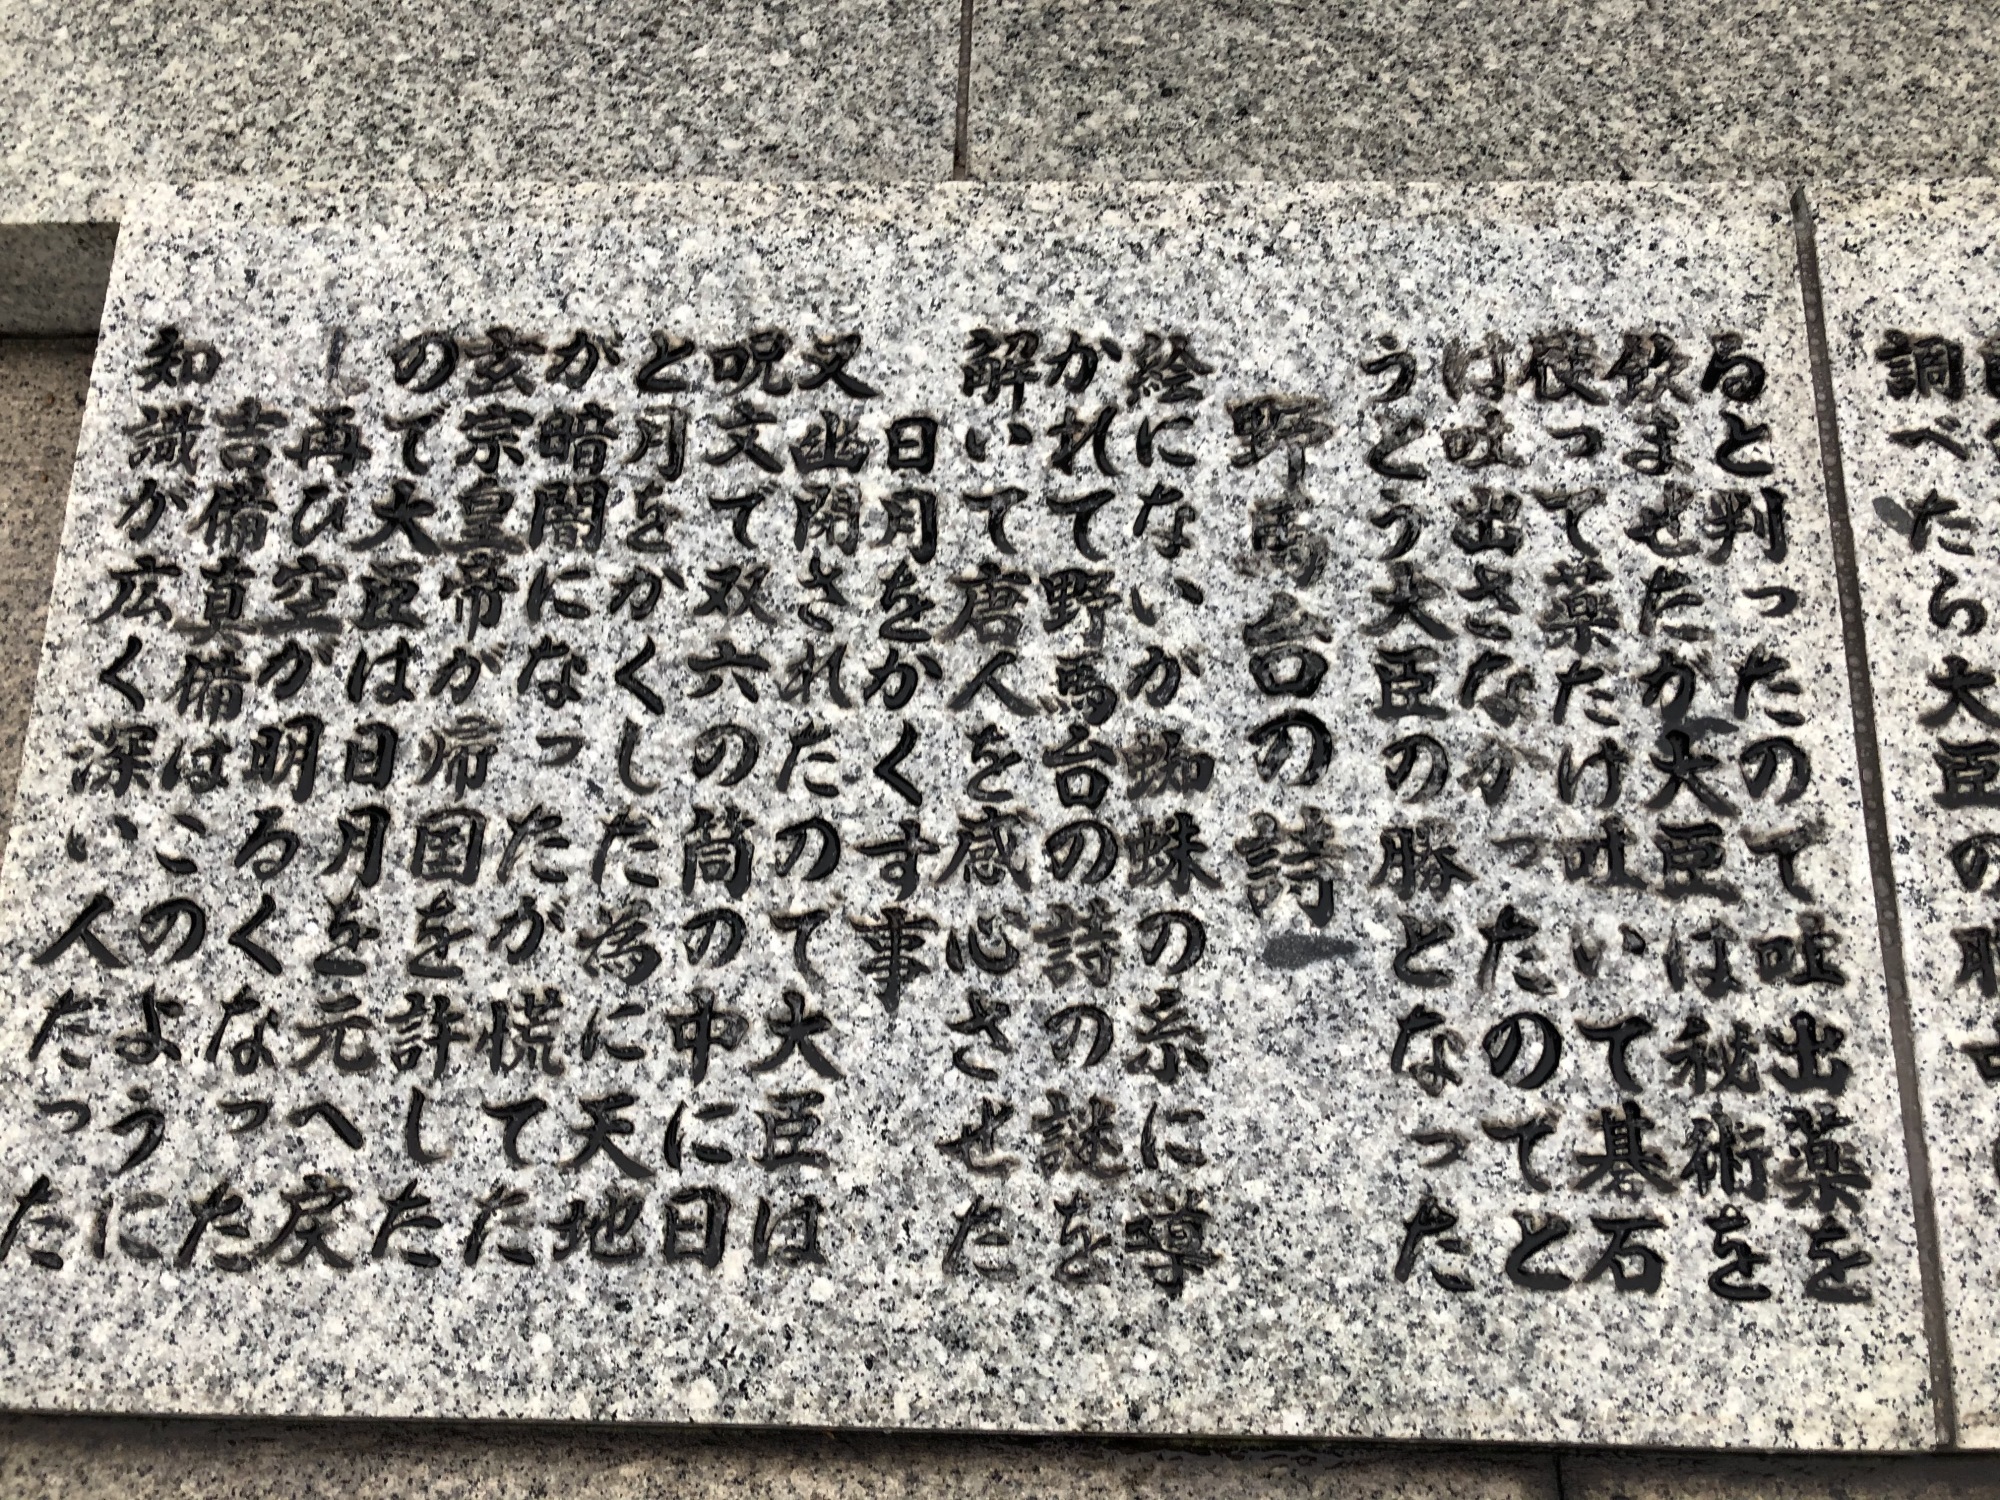 調べたら大臣の
ると判ったので吐出薬を
飲ませたが大臣は秘術を
使って薬だけ吐いて碁石
は吐出さなかったのでと
うとう大臣の勝となった
野馬台の詩
絵にないが蜘蛛の糸に導
かれて野馬台の詩の謎を
解いて唐人を感心させた
日月をかくす事
又幽閉されたので大臣は
呪文で双六の筒の中に日
と月をかくした為に天地
が暗闇になったが慌てた
玄宗皇帝が帰国を許した
ので大臣は日月を元へ戻
し再び空が明るくなった
吉備真備はこのように
知識が広く深い人だった